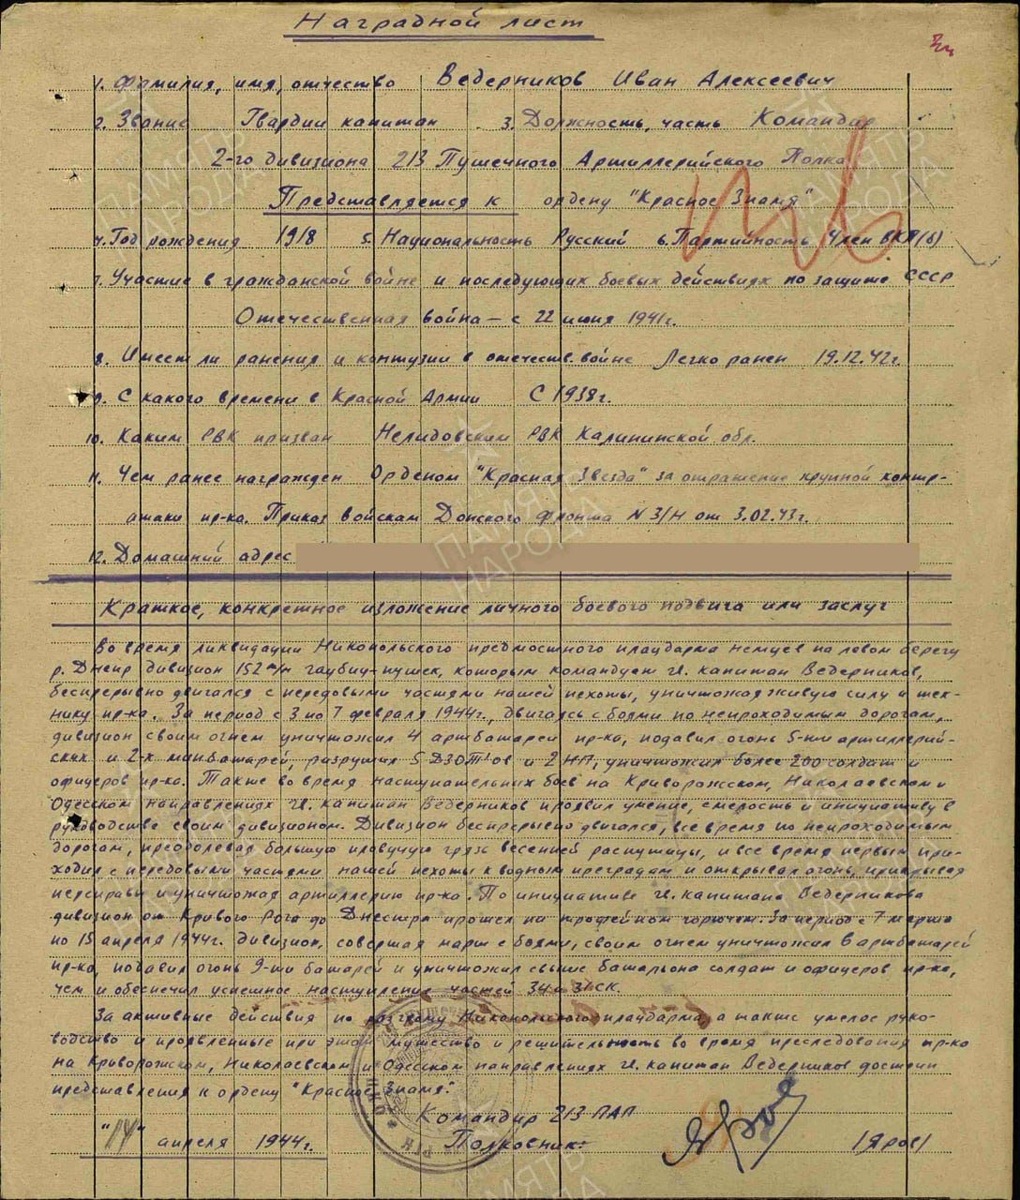 Наградной лист
1. Фамилия, имя, отчество Ведерников Иван Алексеевич
2. Звание Гвардии капитан 3. Должность, часть Командир
2-го дивизиона 213 Пушечного Артиллерийского Полка
Представляется к ордену "Красное Знамя"
4. Год рождения 1918 5. Национальность Русский 6. Партийность Член ВКП(б)
7. Участие в гражданской войне и последующих боевых действиях по защите СССР
Отечественная война - с 22 июня 1941г.
8. Имеет ли ранения и контузии в отечеств. войне Легко ранен 19.12.42г.
9. С какого времени в Красной Армии С 1938г.
10. Каким РВК призван Нелидовским РВК Калининской обл.
11. Чем ранее награжден Орденом "Красная Звезда" за отражение крупной контр-
атаки пр-ка. Приказ войскам Донского фронта N 3/Н от 3.02.43г.
12. Домашний адрес
Краткое, конкретное изложение личного боевого подвига или заслуг
Во время ликвидации Никопольского предмостного плацдарма немцев на левом берегу
р. Днепр дивизион 152 м/м гаубиц-пушек, которым командует гв. капитан Ведерников,
беспрерывно двигался с передовыми частями нашей пехоты, уничтожая живую силу и тех-
нику пр-ка. За период с 3 по 7 февраля 1944г., двигаясь с боями по непроходимым дорогам,
дивизион своим огнем уничтожил 4 артбатареи пр-ка, подавил огонь 5-ти артиллерий-
ских и 2-х минбатарей, разрушил 5 ДЗОТ'ов и 2 НП, уничтожил более 200 солдат и
офицеров пр-ка. Также во время наступательных боев на Криворожском, Николаевском и
Одесском направлениях гв. капитан Ведерников проявил умение, смелость и инициативу в
руководстве своим дивизионом. Дивизион беспрерывно двигался, все время по непроходимым
дорогам, преодолевал большую плавучую грязь весенней распутицы, и все время первым при-
ходил с передовыми частями нашей пехоты к водным преградам и открывал огонь, прикрывая
переправы и уничтожая артиллерию пр-ка. По инициативе гв. капитана Ведерникова
дивизион от Кривого Рога до Днестра прошел на трофейном горючем. За период с 7 марта
по 15 апреля 1944г. дивизион, совершая марш с боями, своим огнем уничтожил 6 артбатарей
пр-ка, подавил огонь 9-ти батарей и уничтожил свыше батальона солдат и офицеров пр-ка,
чем и обеспечил успешное наступление частей 34 и 31 СК.
За активные действия по разгрому Никопольского плацдарма, а также умелое руко-
водство и проявленные при этом мужество и решительность во время преследования пр-ка
на Криворожском, Николаевском и Одесском направлениях гв. капитан Ведерников достоин
представления к ордену "Красное Знамя".
Командир 213 ПАП
"14" апреля 1944г. Полковник: /Яров/
ПАМЯТЬ НАРОДА